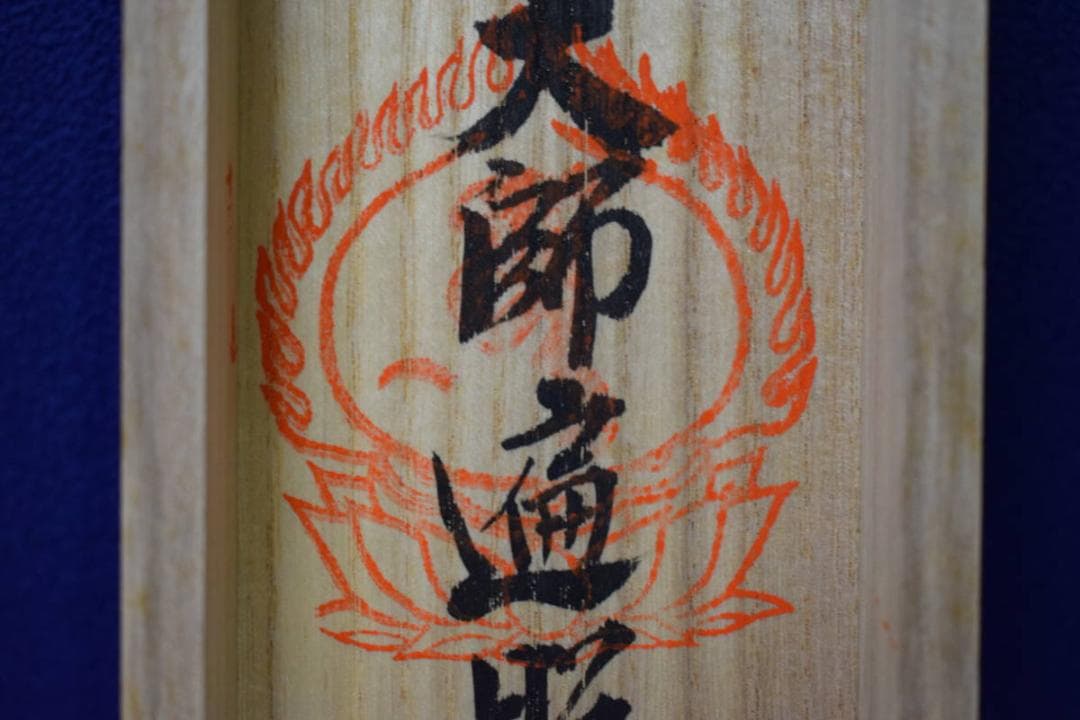 大師遍照